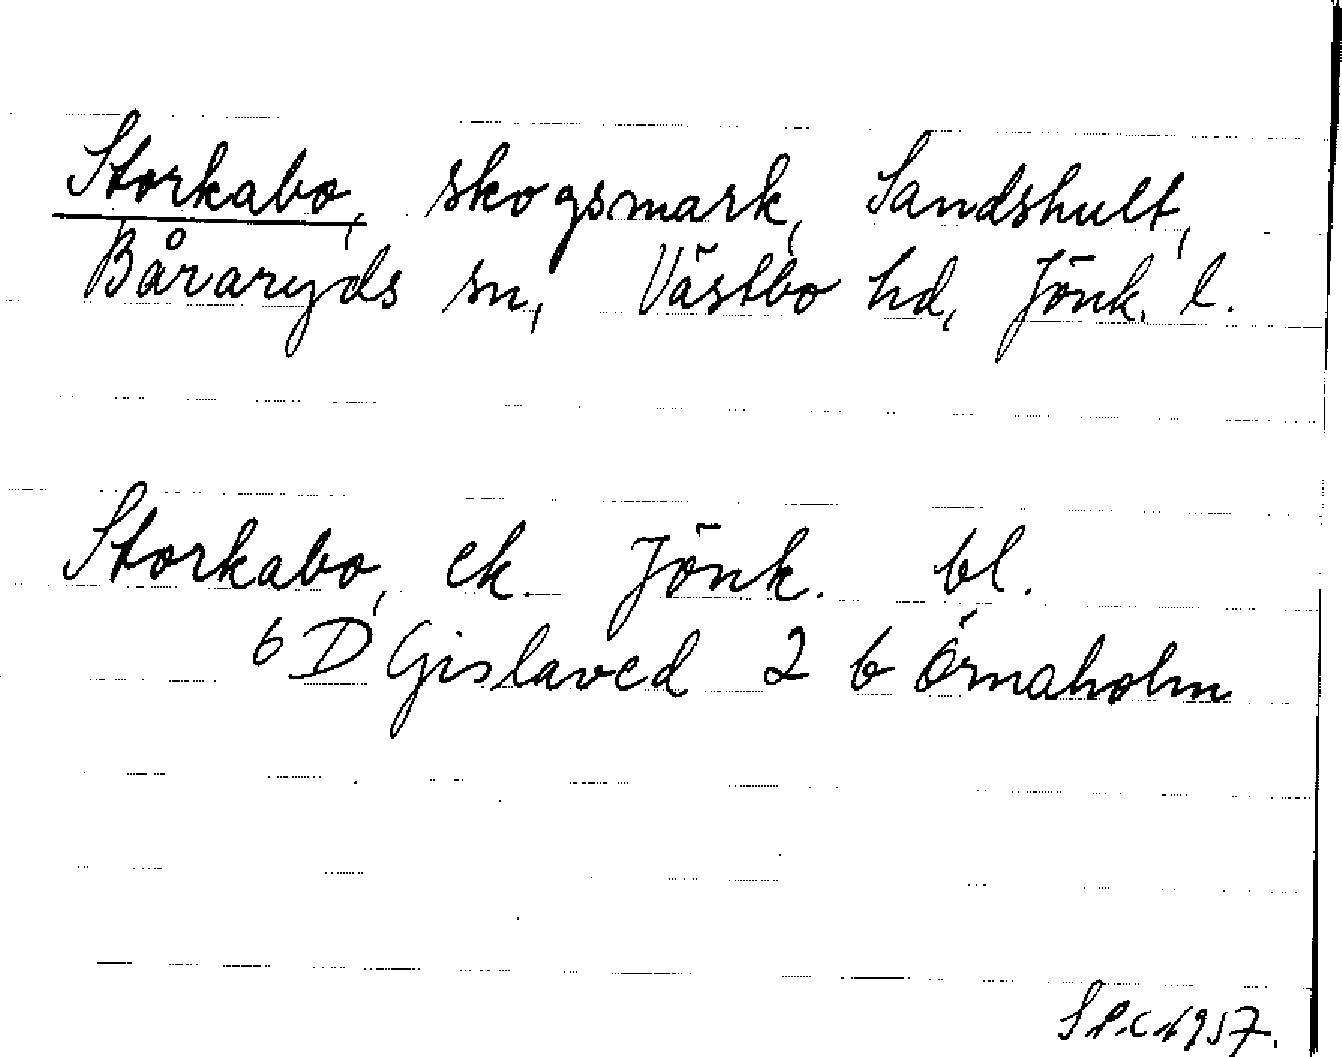 Storkabo, skogsmark, Sandshult,
Båraryds sn, Västbo hd, Jönk. l.
Storkabo, ek. Jönk. bl.
6 D Gislaved 2 b Örnaholm
1957.